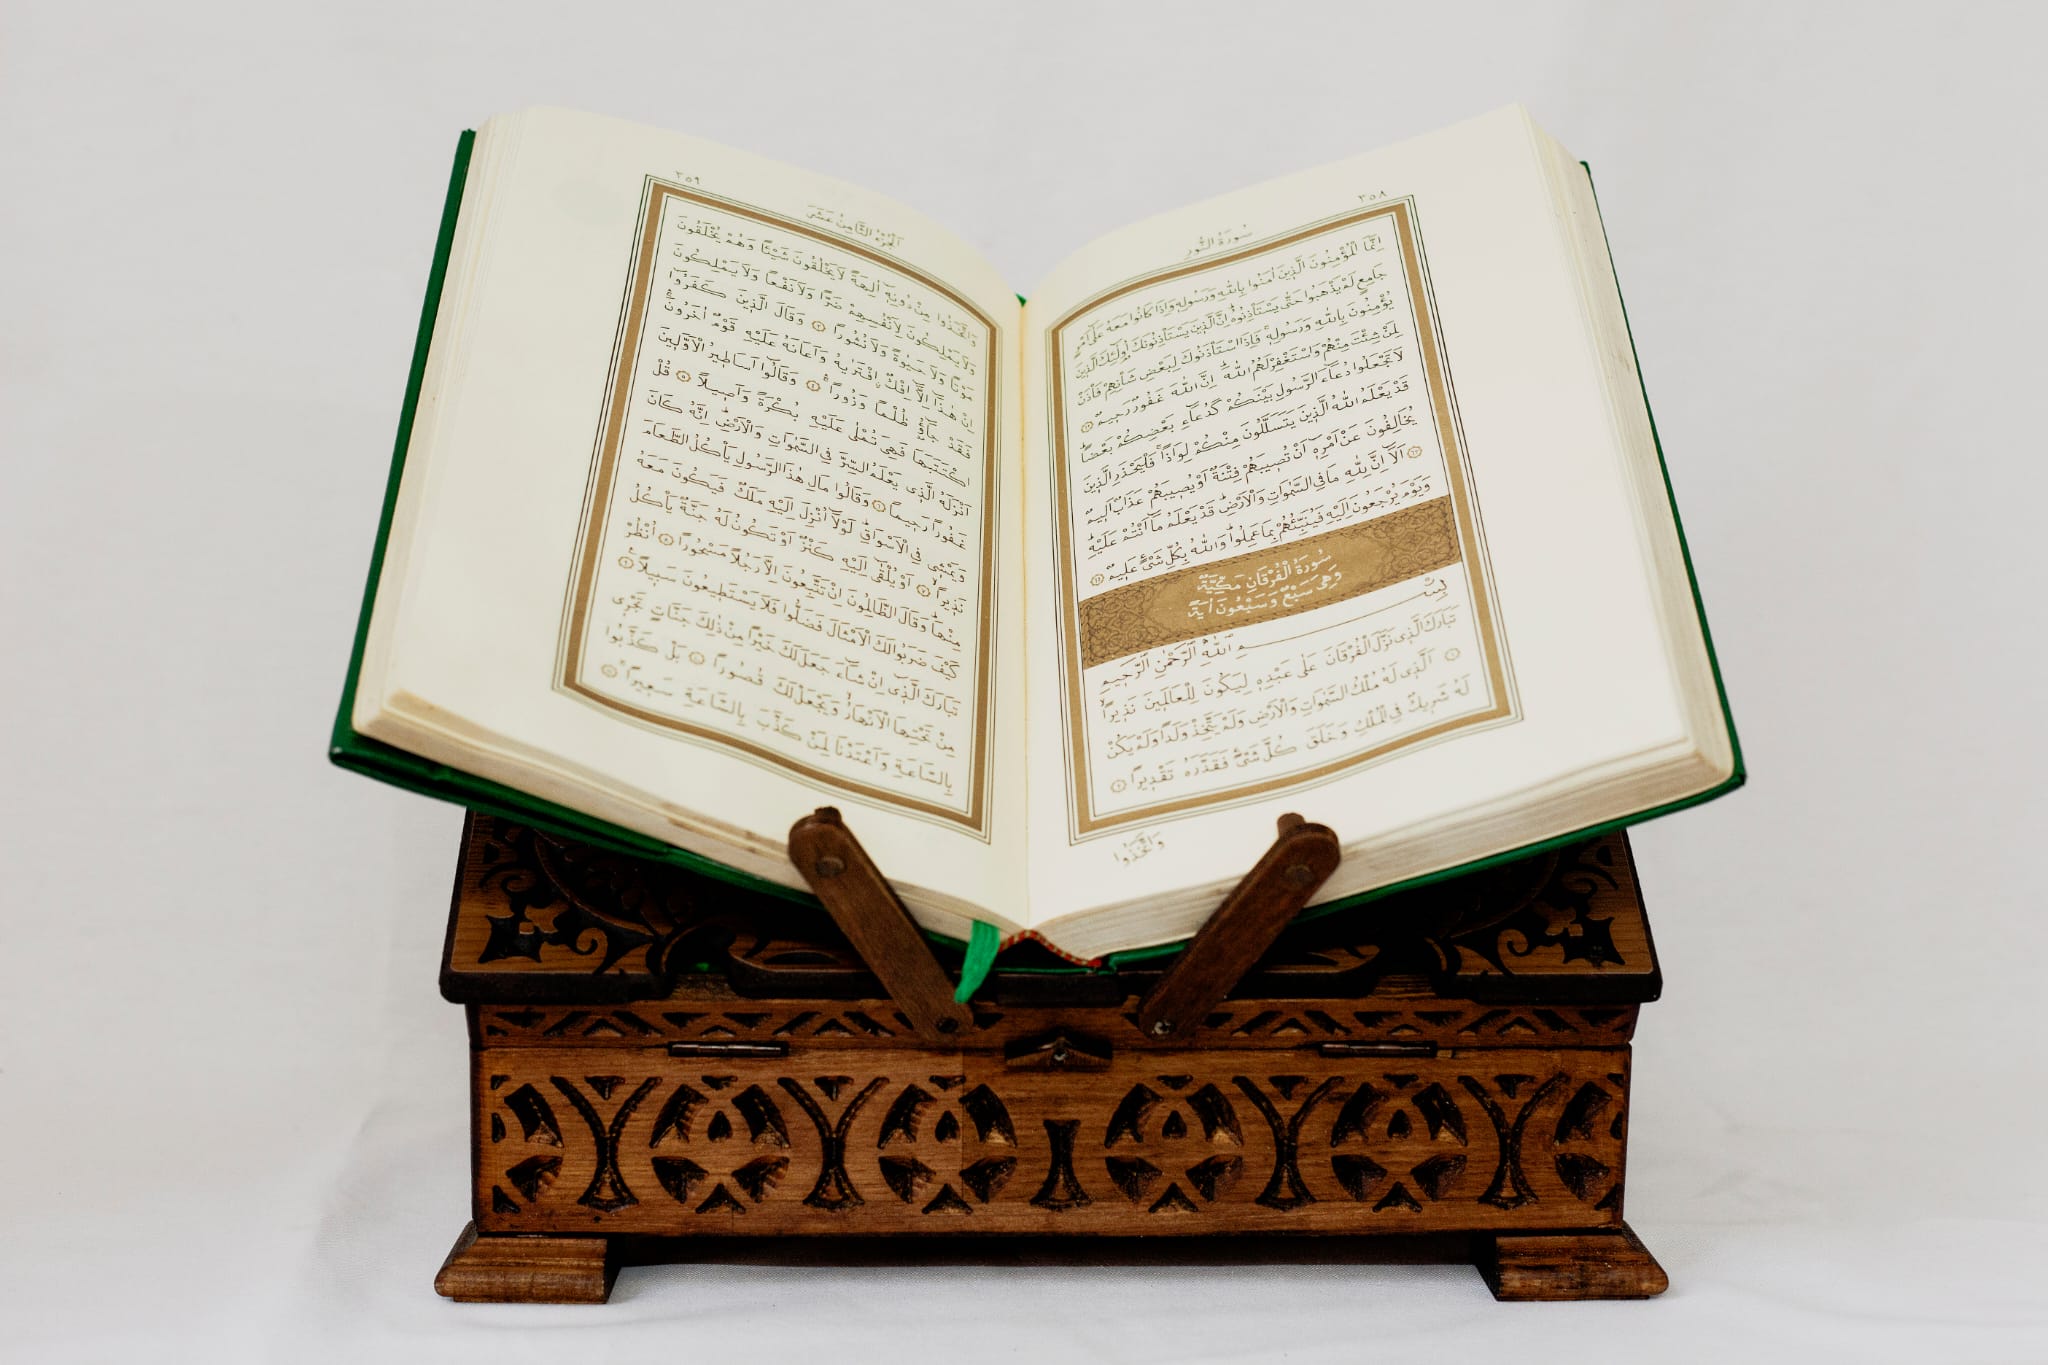 ٣٥٨
سُورَةُ النُّور
اِنَّمَا الْمُؤْمِنُونَ الَّذٖينَ اٰمَنُوا بِاللّٰهِ وَرَسُولِهٖ وَاِذَا كَانُوا مَعَهُ عَلٰٓى اَمْرٍ
جَامِعٍ لَمْ يَذْهَبُوا حَتّٰى يَسْتَأْذِنُوهُ اِنَّ الَّذٖينَ يَسْتَأْذِنُونَكَ اُو۬لٰٓئِكَ الَّذٖينَ
يُؤْمِنُونَ بِاللّٰهِ وَرَسُولِهٖ فَاِذَا اسْتَأْذَنُوكَ لِبَعْضِ شَأْنِهِمْ فَأْذَنْ
لِمَنْ شِئْتَ مِنْهُمْ وَاسْتَغْفِرْ لَهُمُ اللّٰهَ اِنَّ اللّٰهَ غَفُورٌ رَحٖيمٌ ٦٢
لَا تَجْعَلُوا دُعَٓاءَ الرَّسُولِ بَيْنَكُمْ كَدُعَٓاءِ بَعْضِكُمْ بَعْضًا
قَدْ يَعْلَمُ اللّٰهُ الَّذٖينَ يَتَسَلَّلُونَ مِنْكُمْ لِوَاذًا فَلْيَحْذَرِ الَّذٖينَ
يُخَالِفُونَ عَنْ اَمْرِهٖٓ اَنْ تُصٖيبَهُمْ فِتْنَةٌ اَوْ يُصٖيبَهُمْ عَذَابٌ اَلٖيمٌ
٦٣ اَلَٓا اِنَّ لِلّٰهِ مَا فِي السَّمٰوَاتِ وَالْاَرْضِ قَدْ يَعْلَمُ مَٓا اَنْتُمْ عَلَيْهِ
وَيَوْمَ يُرْجَعُونَ اِلَيْهِ فَيُنَبِّئُهُمْ بِمَا عَمِلُوا وَاللّٰهُ بِكُلِّ شَيْءٍ عَلٖيمٌ ٦٤
سُورَةُ الْفُرْقَانِ مَكِّيَّةٌ
وَهِيَ سَبْعٌ وَسَبْعُونَ اٰيَةً
بِسْمِ اللّٰهِ الرَّحْمٰنِ الرَّحٖيمِ
تَبَارَكَ الَّذٖي نَزَّلَ الْفُرْقَانَ عَلٰى عَبْدِهٖ لِيَكُونَ لِلْعَالَمٖينَ نَذٖيرًا
١ اَلَّذٖي لَهُ مُلْكُ السَّمٰوَاتِ وَالْاَرْضِ وَلَمْ يَتَّخِذْ وَلَدًا وَلَمْ يَكُنْ
لَهُ شَرٖيكٌ فِي الْمُلْكِ وَخَلَقَ كُلَّ شَيْءٍ فَقَدَّرَهُ تَقْدٖيرًا ٢
وَاتَّخَذُوا
٣٥٩
اَلْجُزْءُ الثَّامِنُ عَشَرَ
وَاتَّخَذُوا مِنْ دُونِهٖٓ اٰلِهَةً لَا يَخْلُقُونَ شَيْـًٔا وَهُمْ يُخْلَقُونَ
وَلَا يَمْلِكُونَ لِاَنْفُسِهِمْ ضَرًّا وَلَا نَفْعًا وَلَا يَمْلِكُونَ
مَوْتًا وَلَا حَيٰوةً وَلَا نُشُورًا ٣ وَقَالَ الَّذٖينَ كَفَرُٓوا
اِنْ هٰذَٓا اِلَّٓا اِفْكٌ افْتَرٰيهُ وَاَعَانَهُ عَلَيْهِ قَوْمٌ اٰخَرُونَ
فَقَدْ جَٓاؤُ۫ ظُلْمًا وَزُورًا ٤ وَقَالُٓوا اَسَاطٖيرُ الْاَوَّلٖينَ
اكْتَتَبَهَا فَهِيَ تُمْلٰى عَلَيْهِ بُكْرَةً وَاَصٖيلًا ٥ قُلْ
اَنْزَلَهُ الَّذٖي يَعْلَمُ السِّرَّ فِي السَّمٰوَاتِ وَالْاَرْضِ اِنَّهُ كَانَ
غَفُورًا رَحٖيمًا ٦ وَقَالُوا مَالِ هٰذَا الرَّسُولِ يَأْكُلُ الطَّعَامَ
وَيَمْشٖي فِي الْاَسْوَاقِ لَوْلَٓا اُنْزِلَ اِلَيْهِ مَلَكٌ فَيَكُونَ مَعَهُ
نَذٖيرًا ٧ اَوْ يُلْقٰٓى اِلَيْهِ كَنْزٌ اَوْ تَكُونُ لَهُ جَنَّةٌ يَأْكُلُ
مِنْهَا وَقَالَ الظَّالِمُونَ اِنْ تَتَّبِعُونَ اِلَّا رَجُلًا مَسْحُورًا ٨ اُنْظُرْ
كَيْفَ ضَرَبُوا لَكَ الْاَمْثَالَ فَضَلُّوا فَلَا يَسْتَطٖيعُونَ سَبٖيلًا ٩
تَبَارَكَ الَّذٖٓي اِنْ شَٓاءَ جَعَلَ لَكَ خَيْرًا مِنْ ذٰلِكَ جَنَّاتٍ تَجْرٖي
مِنْ تَحْتِهَا الْاَنْهَارُ وَيَجْعَلْ لَكَ قُصُورًا ١٠ بَلْ كَذَّبُوا
بِالسَّاعَةِ وَاَعْتَدْنَا لِمَنْ كَذَّبَ بِالسَّاعَةِ سَعٖيرًا ١١